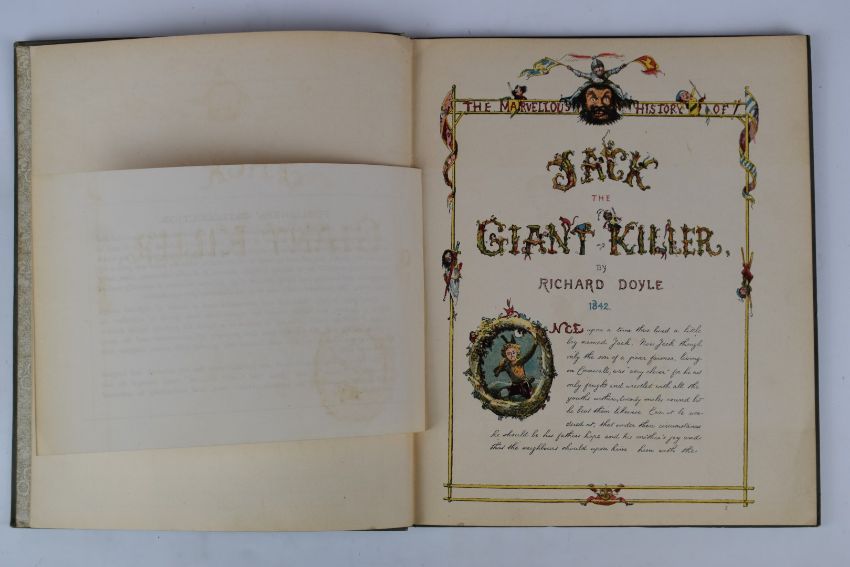 THE MARVELLOUS HISTORY OF
JACK
THE
GIANT KILLER,
BY
RICHARD DOYLE
1842.
ONCE upon a time there lived a little
boy named Jack. Now Jack though
only the son of a poor farmer, living
in Cornwall, was very clever for he not
only fought and wrestled with all the
youths within twenty miles round but
he beat them likewise
that under these circumstances
he should be his fathers hope and his mother's joy and
that the neighbours should upon him with the